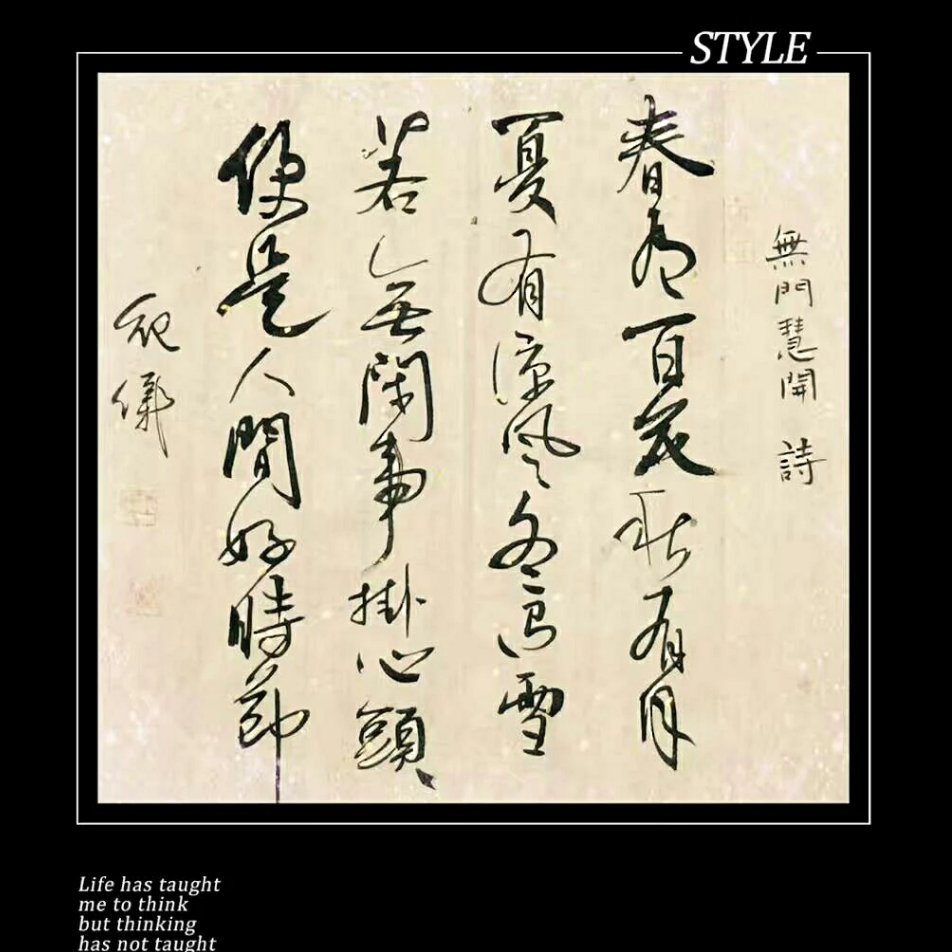 STYLE
無門慧開 詩
春有百花秋有月
夏有涼風冬有雪
若無閑事掛心頭
便是人間好時節
Life has taught
me to think
but thinking
has not taught